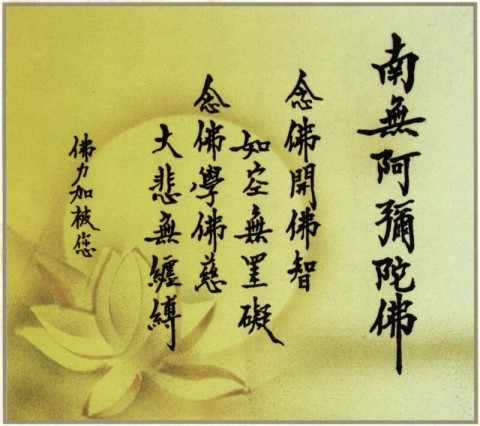 南無阿彌陀佛
念佛開佛智
如空無罣礙
念佛學佛慈
大悲無纏縛
佛力加被您